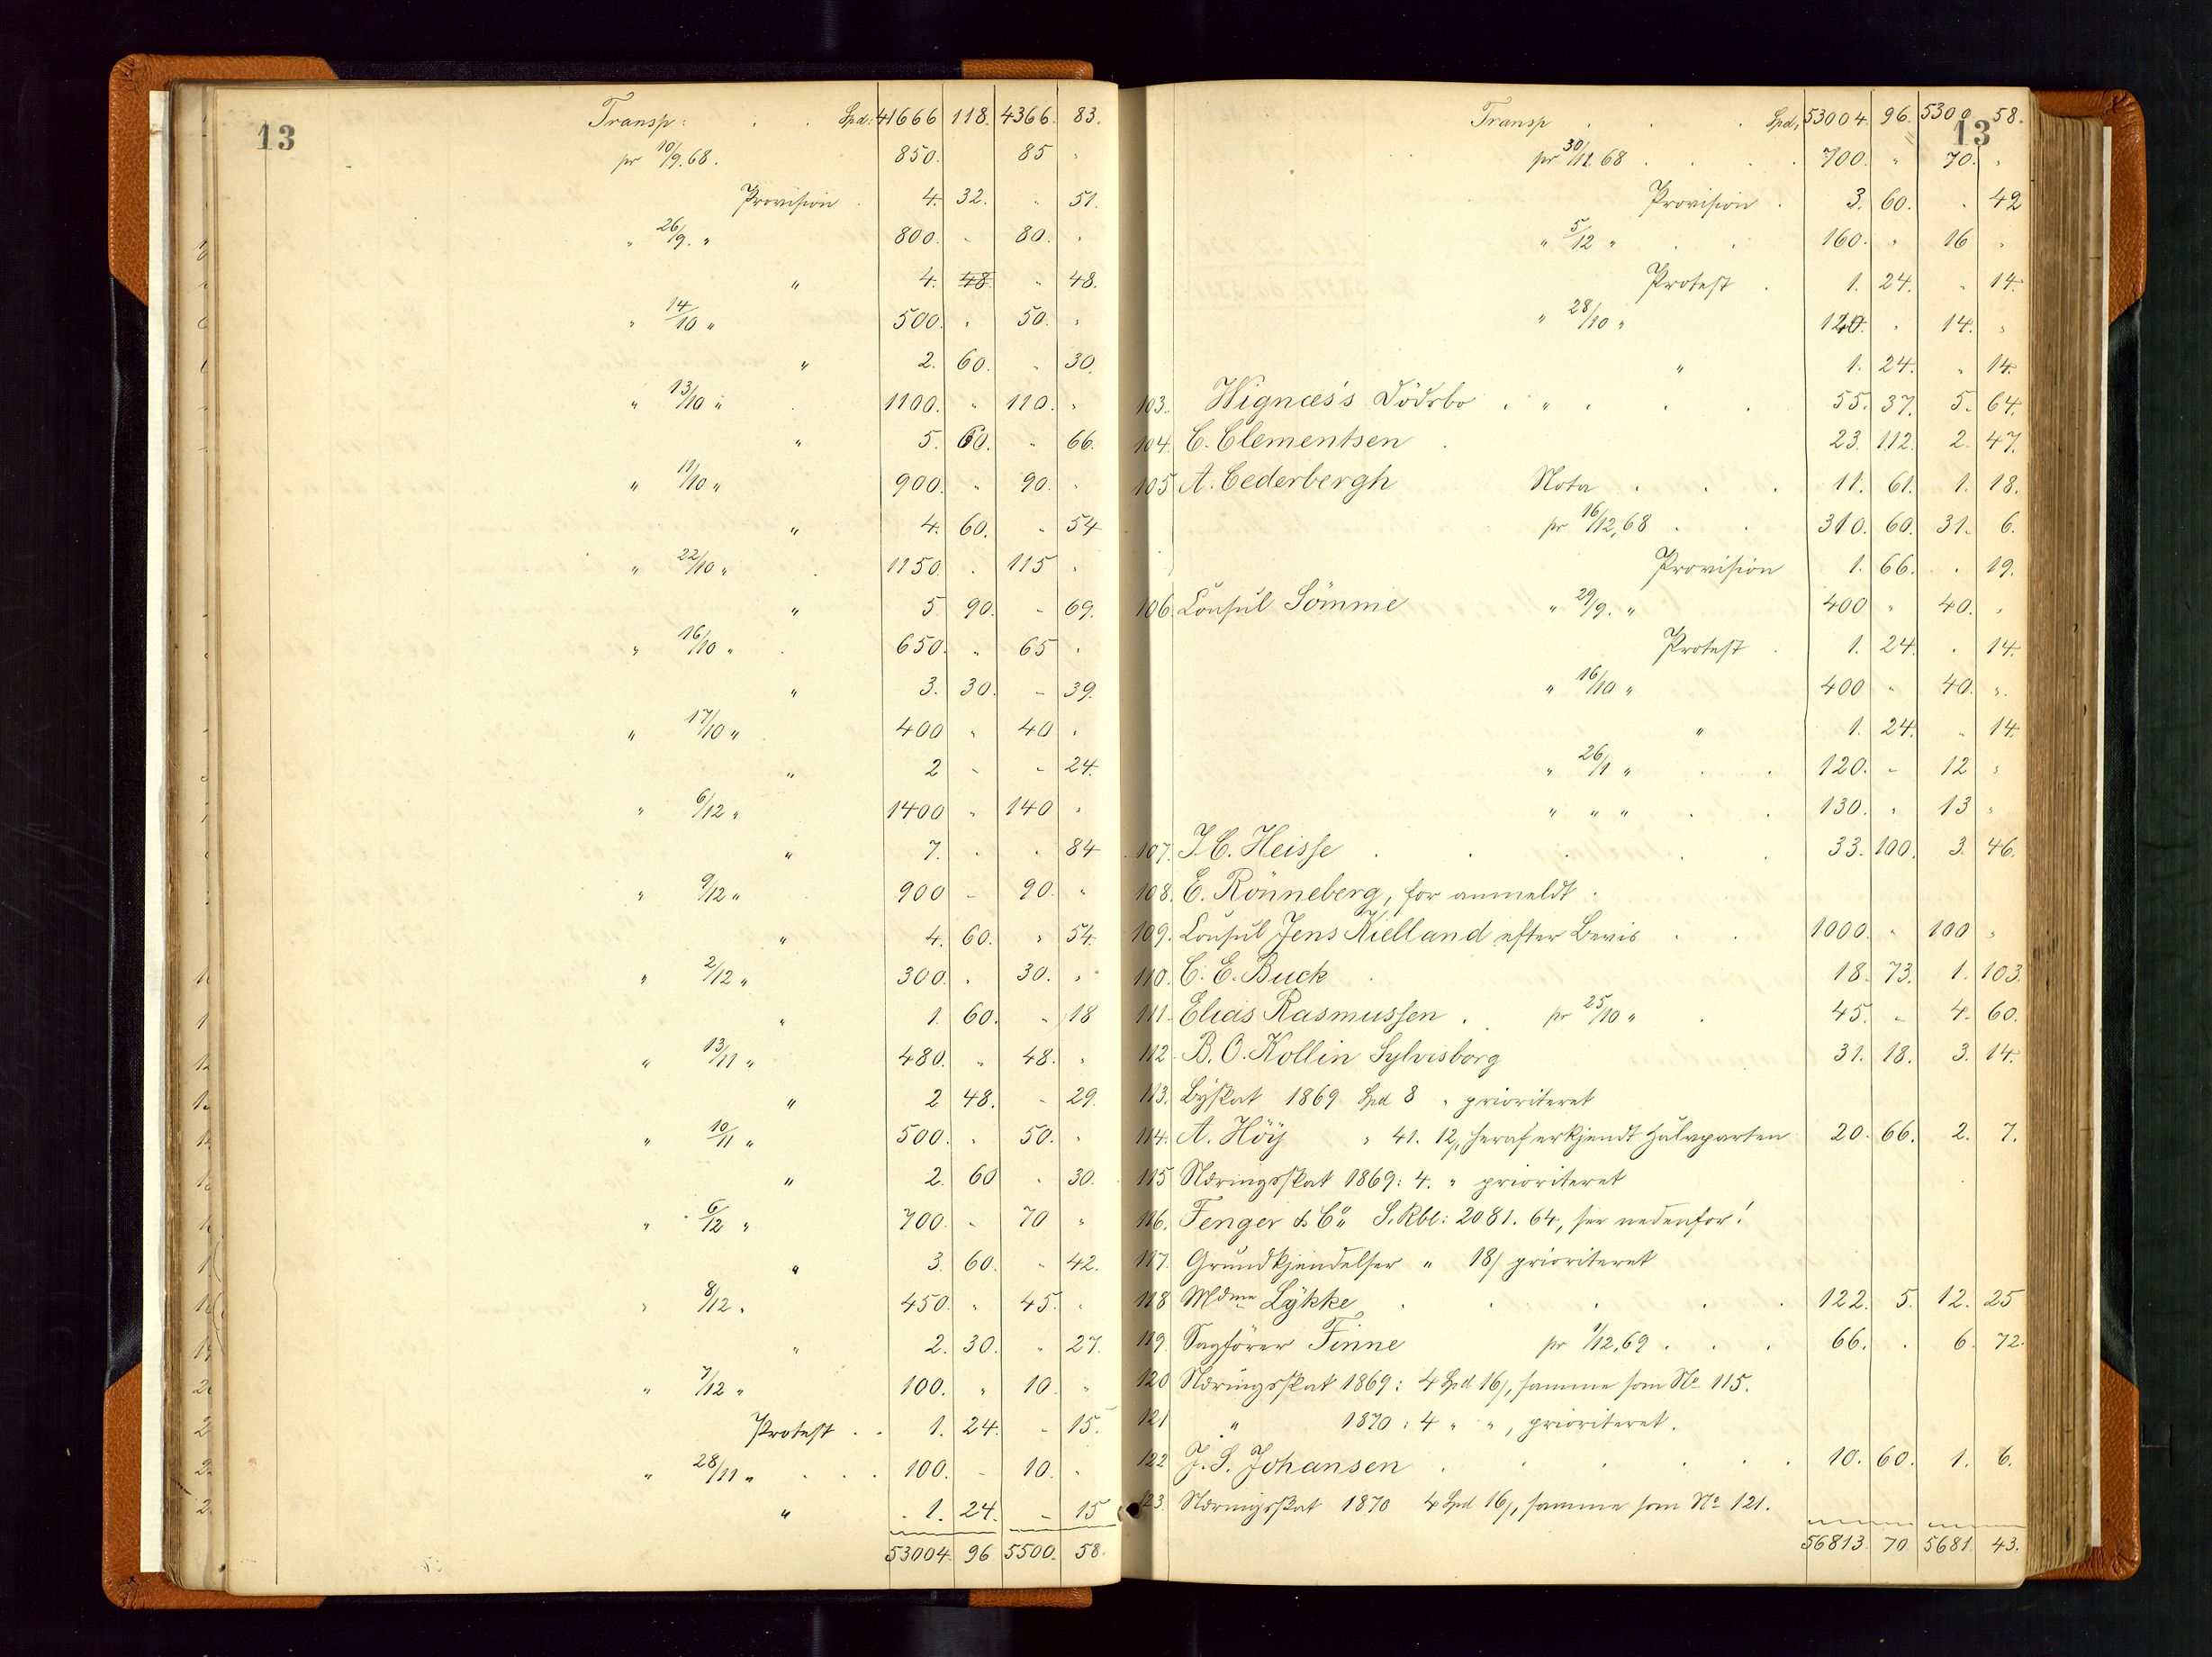 13
Transp: . . Spd: 41666 118. 4366. 83.
pr 10/9.68. 850. 85 "
Provision . 4. 32. " 51.
" 26/9. " 800. " 80. "
" 4. 48. " 48.
" 14/10 " 500. " 50. "
" 2. 60. " 30.
" 13/10 " . 1100. " 110. "
" 5. 60. " 66.
" 11/10 " 900. " 90. "
" 4. 60. " 54
" 22/10 " . 1150. " 115 "
" 5 90. " 69.
" 16/10 " . 650. " 65 "
" 3. 30. " 39.
" 17/10 " 400 " 40 "
" 2 " " 24.
" 6/12 " 1400 " 140 "
" 7. " " 84
" 9/12 " 900 " 90. "
" 4. 60. " 54.
" 2/12 " 300. " 30. "
" 1. 60. " 18
" 13/11 " 480. " 48. "
" 2 48. " 29.
" 10/11 " 500. " 50. "
" 2. 60 " 30.
" 6/12 " 700. " 70 "
" 3. 60. " 42.
" 8/12 " 450. " 45. "
" 2. 30. " 27.
" 7/12 " 100. " 10. "
Protest . . 1. 24. " 15.
" 28/11 " . . . 100. " 10. "
" 1. 24. " 15
53004. 96 5500. 58.
13
Transp . . . Spd. 53004. 96. 5300 58.
pr 30/11 68 . . . . 700. " 70. "
Provision . 3. 60. " 42
" 5/12 " . . 160. " 16 "
Protest . 1. 24. " 14.
" 28/10 " 140. " 14. "
" 1. 24. " 14.
103. Wignæs's Dödsbo . " . . . 55. 37. 5. 64.
104. C. Clementsen . 23. 112. 2. 47.
105 A. Cederbergh Nota . . . 11. 61. 1. 18.
pr 16/12,68 . . 310. 60. 31. 6.
Provision 1. 66. . 19.
106. Consul Sömme " 29/9. " 400 " 40. "
Protest . 1. 24. . 14.
" 16/10 " 400 " 40. "
" 1. 24. " 14.
" 26/1 " . . 120. " 12 "
" " " . . 130. " 13 "
107. J. C. Heisse . . . . . 33. 100. 3. 46.
108. E. Rönneberg, for anmeldt .
109. Consul Jens Kielland efter Bevis . . 1000. " 100 "
110. C. E. Buck . 18. 73. 1. 103.
111. Elias Rasmussen . pr 25/10 " . 45. " 4. 60.
112. B. O. Kollin Sylvisborg 31. 18. 3. 14.
113. Byskat 1869 Spd 8 " prioriteret
114. A. Höÿ " 41. 12, heraf erkjendt Halvparten 20. 66. 2. 7.
115 Næringsskat 1869: 4. " prioriteret
116. Fenger & Co S. Rbl: 2081. 64, see nedenfor!
117. Grundkjendelser " 18/ prioriteret
118 Mdme Lykke . . . . . 122. 5. 12. 25
119. Sagförer Finne pr 1/12,69 . . . 66. . 6. 72.
120 Næringsskat 1869: 4 Spd 16/, samme som No 115.
121 " 1870: 4 " ", prioriteret.
122 J. S. Johansen . . . . . 10. 60. 1. 6.
123. Næringsskat 1870 4 Spd 16/, samme som No 121.
56813. 70 5681. 43.